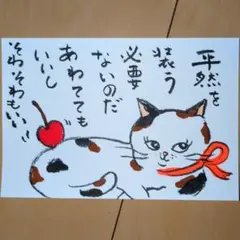 平然を
装う
必要
ないのだ
あわてても
いいし
そわそわもいい